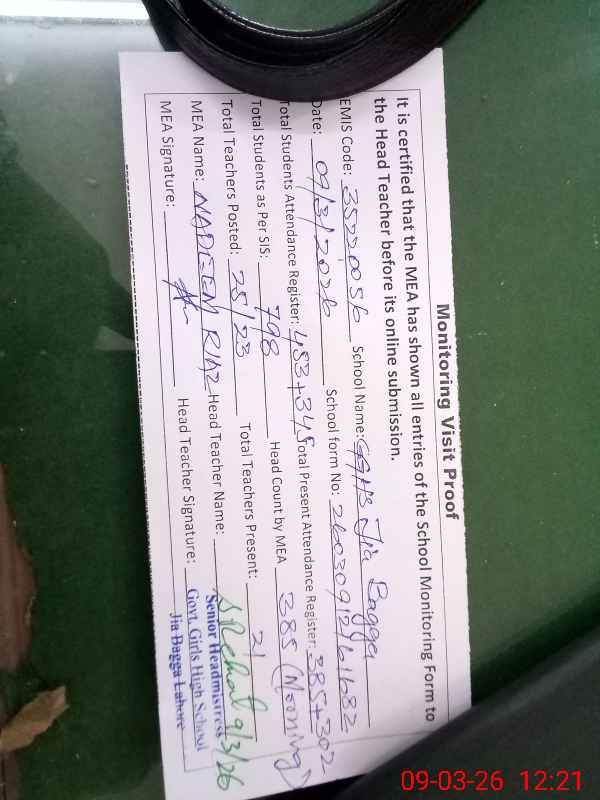 Monitoring Visit Proof
It is certified that the MEA has shown all entries of the School Monitoring Form to
the Head Teacher before its online submission.
EMIS Code: 35220056 School Name: GGHS Jia Bagga
Date: 09/3/2026 School form No: 26030912161682
Total Students Attendance Register: 453+345 Total Present Attendance Register: 385+302
Total Students as Per SIS: 798 Head Count by MEA 385 (Morning)
Total Teachers Posted: 25/23 Total Teachers Present: 21
MEA Name: NADEEM RIAZ Head Teacher Name:
MEA Signature: Head Teacher Signature: 9/3/26
Senior Headmistress
Govt. Girls High School
Jia Bagga Lahore
09-03-26 12:21